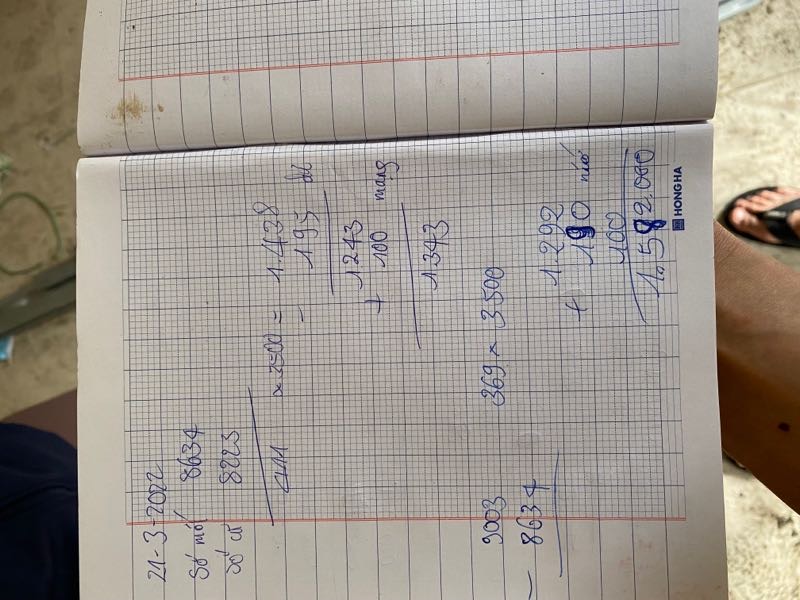 21-3-2022
Số mới 8634
Số cũ 8223
411 x 3500 = 1.438
- 195 dư
1243
+ 100 mạng
1.343
9003
- 8634
369 x 3500
1.292
+ 190 nước
100
1.582.000
HONG HA